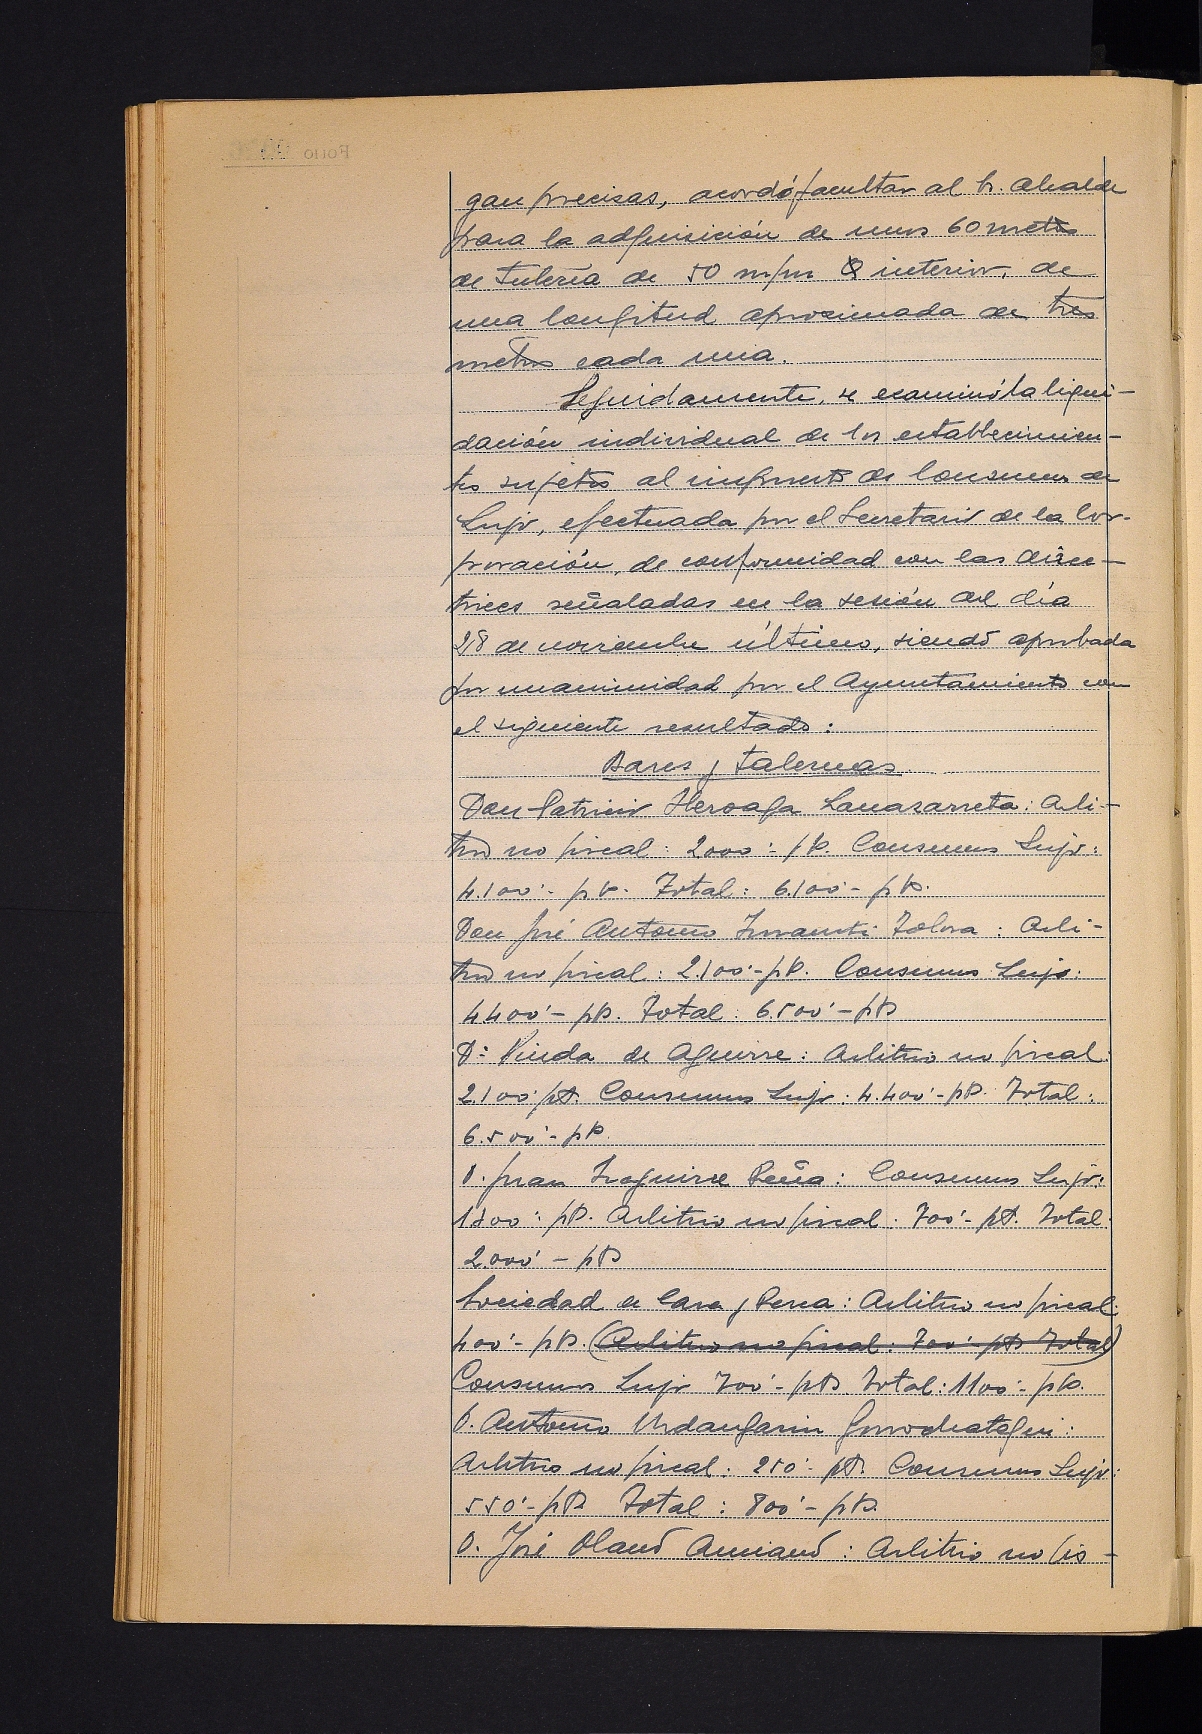 Folio
gan precisas, acordó facultar al Sr. Alcalde
para la adquisición de unos 60 metros
de tubería de 50 m/m Ø interior, de
una longitud aproximada de tres
metros cada una.
Seguidamente, se examinó la liqui-
dación individual de los establecimien-
tos sujetos al impuesto de Consumos de
Lujo, efectuada por el Secretario de la Cor-
poración, de conformidad con las direc-
trices señaladas en la sesión del día
28 de noviembre último, siendo aprobada
por unanimidad por el Ayuntamiento con
el siguiente resultado:
Bares y Tabernas
Don Patricio Lanazarreta: Arbi-
trio no fiscal: 2000'- pts. Consumos Lujo:
4.100'- pts. Total: 6.100'- pts.
Don José Antonio Tolosa: Arbi-
trio no fiscal: 2.100'- pts. Consumos Lujo:
4400'- pts. Total: 6.500'- pts
Dª Viuda de Aguirre: Arbitrio no fiscal:
2.100' pts. Consumos Lujo: 4.400'- pts. Total:
6.500'- pts.
D. Juan Izaguirre Peña: Consumos Lujo:
1300'- pts. Arbitrio no fiscal: 700'- pts. Total:
2.000'- pts
Sociedad de Caza y Pesca: Arbitrio no fiscal:
400'- pts. (Arbitrio no fiscal: 700'- pts Total)
Consumos Lujo 700'- pts. Total: 1100'- pts.
D. Antonio Urdangarin Gorrochategui:
Arbitrio no fiscal: 250'- pts. Consumos Lujo:
550'- pts Total: 800'- pts.
D. José Olano: Arbitrio no fis-